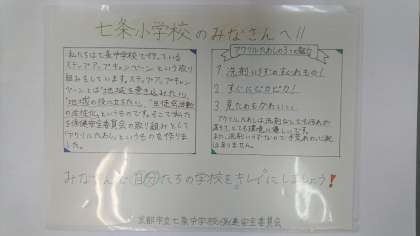 七条小学校のみなさんへ!!
私たちは七条中学校で行っている
ステップアップキャンペーンという取り
組みをしています。ステップアップキャン
ペーンとは"地域を巻き込みたい"
"地域の役に立ちたい"、"生徒会活動
の活性化"というものです。そこで私たち
保健安全委員会の取り組みとして
「アクリルたわし」というものを作りま
した。
アクリルたわしの3つの魅力
1. 洗剤いらずのすぐれもの!
2. すぐにピカピカ!
3. 見ためもかわいい
アクリルたわしは洗剤なしでも汚れが
落ち、とても環境に優しいです。
また、洗剤いらずなので、手荒れの心配
はありません。
みなさんで自分たちの学校をキレイにしましょう!
京都市立七条中学校保健安全委員会